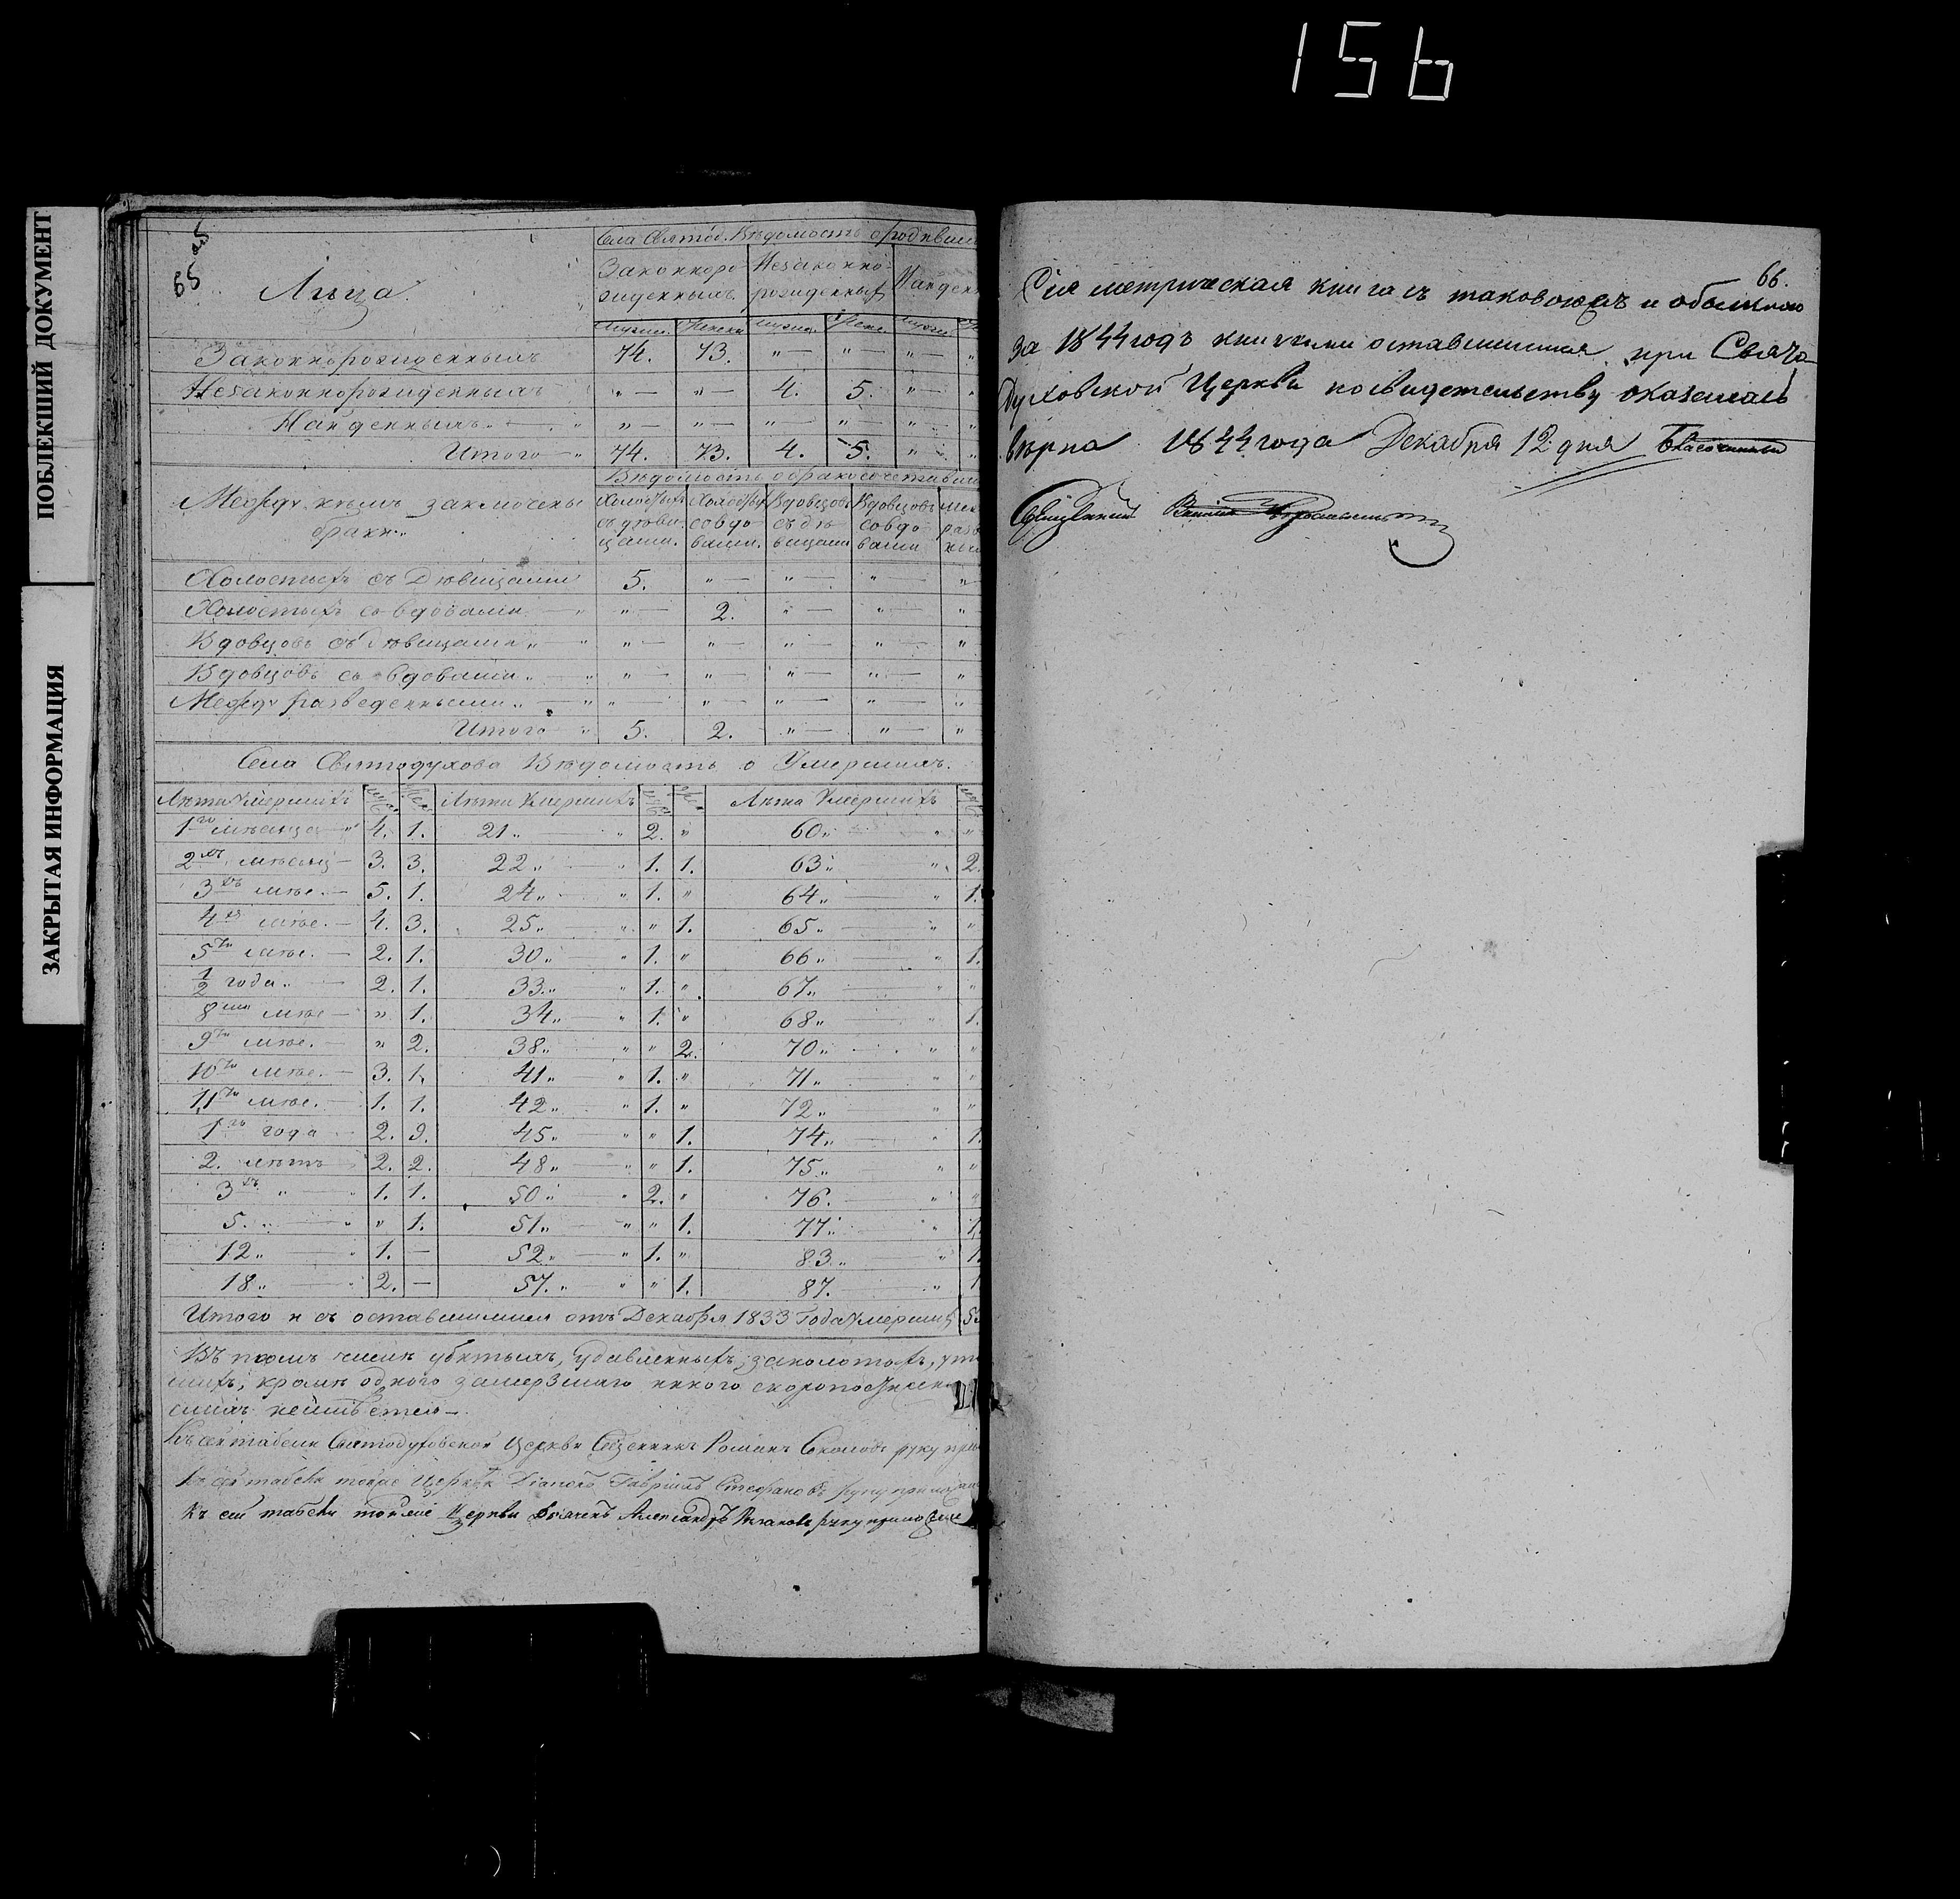 156
ПОБЛЕКШИЙ ДОКУМЕНТ
ЗАКРЫТАЯ ИНФОРМАЦИЯ
65
Лица.
Села Святод. Вѣдомость о родивши
Законноро- Незаконно- Найденн
жденныхъ рожденных
Мужск. Женск.
Законнорожденныхъ 74. 73. " — " — " —
Незаконнорожденныхъ " — " — 4. 5. " —
Найденныхъ " — " — " — " — " —
Итого 74. 73. 4. 5. " —
Вѣдомость о бракосочетавши
Между кѣмъ заключены браки
Холостыхъ съ дѣвицами. Холостых со вдовами. Вдовцовъ съ дѣвицами Вдовцовъ со вдовами
Холостыхъ съ Дѣвицами 5. " — " — " — "
Холостыхъ со вдовами " — 2. " — " — "
Вдовцовъ съ дѣвицами " — " — " — " — "
Вдовцовъ со вдовами " — " — " — " — "
Между разведенными " " — " — " — "
Итого 5. 2. " — " — "
Села Святодухова Вѣдомость о Умершихъ.
Лѣта Умершихъ Лѣта Умершихъ Лѣта Умершихъ
1го мѣсяца 4. 1. 21 " 2. " 60 " "
2хъ мѣсяц 3. 3. 22 " 1. 1. 63 " 2.
3хъ мѣс. 5. 1. 24 " 1. " 64 " 1.
4хъ мѣс. 4. 3. 25 " " 1. 65 " "
5ти мѣс. 2. 1. 30 " 1. " 66 " 1.
1/2 года 2. 1. 33 " 1. " 67 " "
8ми мѣс " 1. 34 " 1. " 68 " 1.
9ти мѣс. " 2. 38 " " 2. 70 " "
10ти мѣс. 3. 1. 41 " 1. " 71 " "
11ти мѣс. 1. 1. 42 " 1. " 72 " "
1го года 2. 9. 45 " " 1. 74 " 1.
2. лѣтъ 2. 2. 48 " " 1. 75 " "
3хъ " 1. 1. 50 " 2. " 76. " "
5. " " 1. 51 " " 1. 77 " 1.
12 " 1. — 52 " 1. " 83 " 1
18 " 2. — 57 " " 1. 87. " 1
Итого и съ оставшимися отъ Декабря 1833 Года Умерших
Въ томъ числѣ убитыхъ, удавленныхъ, заколотыхъ,
шихъ, кромѣ одного замерзшаго никого скоропостижно
шихъ неимѣется —
Къ сей табели Святодуховской Церкви Священникъ руку при
Къ сей табели тойже Церкви Діаконъ Гавріилъ Стефановъ руку приложилъ
Къ сей табели тойже Церкви Дьячекъ Александръ руку приложилъ
66.
Сія метрическая книга съ таковоюжъ и обыскною
за 1844 годъ книгами оставшимися при Свято-
Духовской Церкви по свидетельству оказалась
вѣрна 1844 года Декабря 12 дня Благочинный
Священникъ